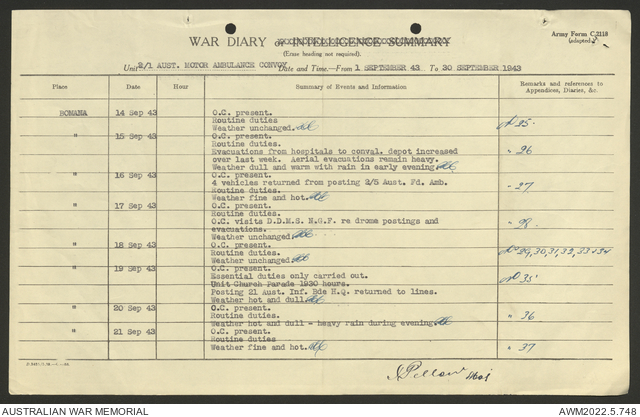 WAR DIARY or INTELLIGENCE SUMMARY
Army Form C.2118
(adapted)
(Erase heading not required).
Unit 2/1 AUST. MOTOR AMBULANCE CONVOY Date and Time.—From 1 SEPTEMBER 43 To 30 SEPTEMBER 1943
Place Date Hour Summary of Events and Information Remarks and references to
Appendices, Diaries, &c.
BOMANA 14 Sep 43 O.C. present.
Routine duties
Weather unchanged. 25.
" 15 Sep 43 O.C. present.
Routine duties.
Evacuations from hospitals to conval. depot increased " 26
over last week. Aerial evacuations remain heavy.
Weather dull and warm with rain in early evening.
" 16 Sep 43 O.C. present.
4 vehicles returned from posting 2/5 Aust. Fd. Amb. " 27
Routine duties.
Weather fine and hot.
" 17 Sep 43 O.C. present.
Routine duties.
O.C. visits D.D.M.S. N.G.F. re drome postings and " 28
evacuations.
Weather unchanged.
" 18 Sep 43 O.C. present.
Routine duties. 29,30,31,32,33+34
Weather unchanged.
" 19 Sep 43 O.C. present.
Essential duties only carried out.
Unit Church Parade 1930 hours. 35
Posting 21 Aust. Inf. Bde H.Q. returned to lines.
Weather hot and dull.
" 20 Sep 43 O.C. present.
Routine duties. " 36
Weather hot and dull - heavy rain during evening.
" 21 Sep 43 O.C. present.
Routine duties
Weather fine and hot. " 37
Pellow Maj
AUSTRALIAN WAR MEMORIAL AWM2022.5.748